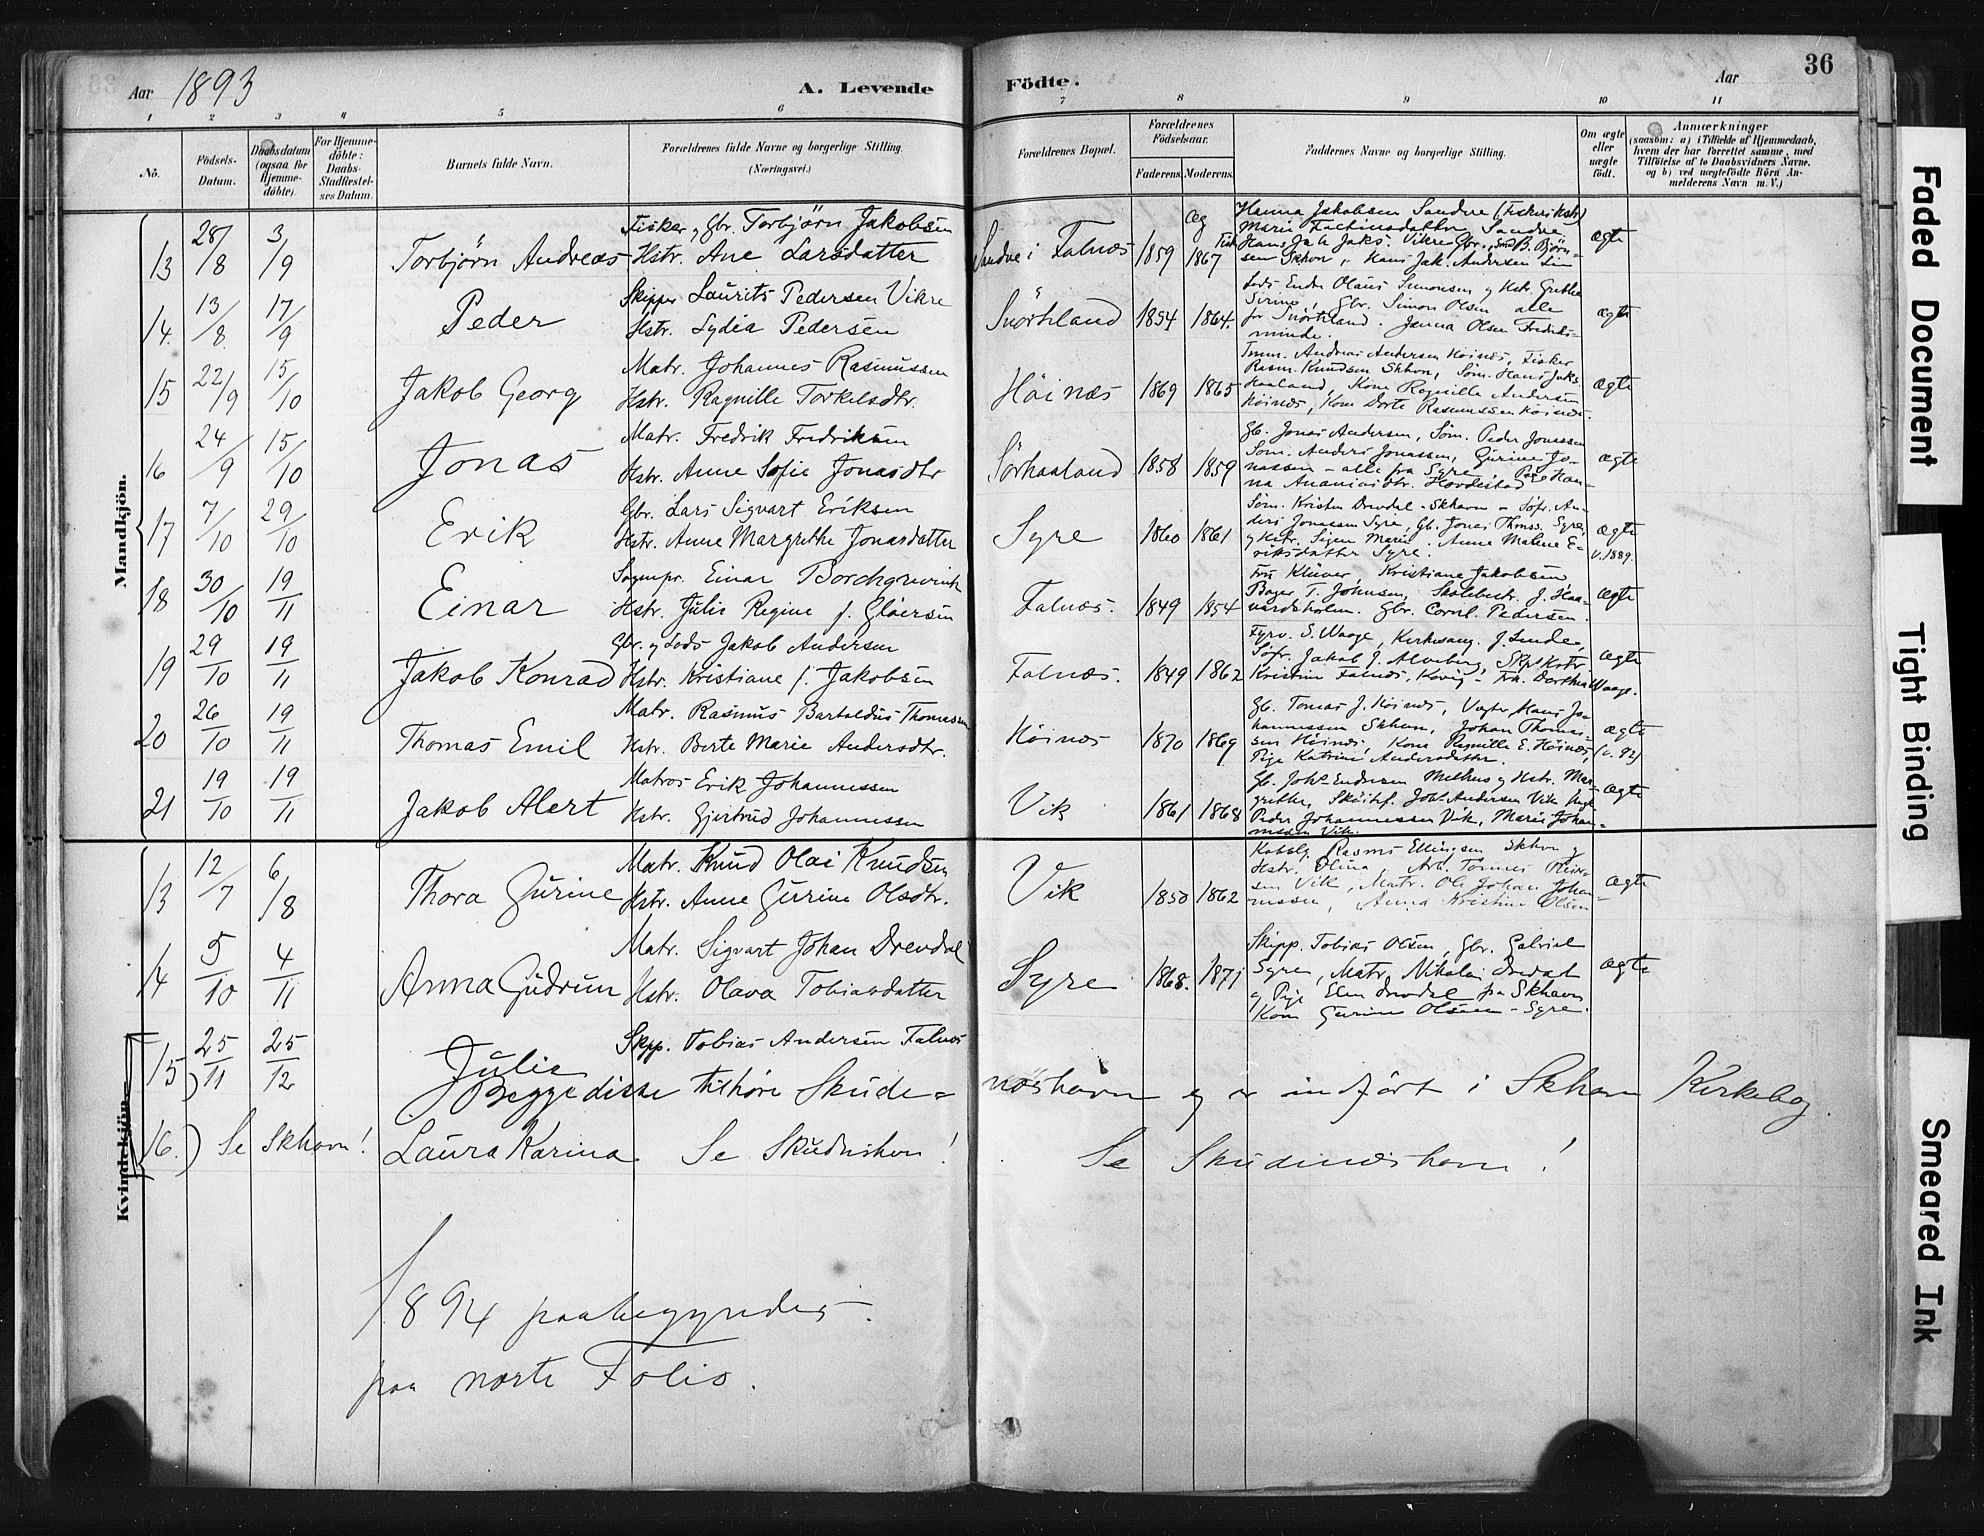 36
Aar 1893
A. Levende
Födte.
Aar
1 2 3 4 5 6 7 8 9 10 11
No.
Födsels-
Datum.
Daabsdatum
(ogsaa for
Hjemme-
döbte).
For Hjemme-
döbte:
Daabs-
Stadfæstel-
ses Datum.
Barnets fulde Navn.
Forældrenes fulde Navne og borgerlige Stilling.
(Næringsvei.)
Forældrenes Bopæl.
Forældrenes
Födselsaar.
Faderens. Moderens.
Faddernes Navne og borgerlige Stilling.
Om ægte
eller
uægte
födt.
Anmærkninger
(saasom: a) i Tilfælde af Hjemmedaab,
hvem der har forrettet samme, med
Tilföielse af to Daabsvidners Navne.
og b) ved uægtefödte Börn An-
melderens Navn m. V.)
Mandkjön.
13 28/8 3/9 Torbjörn Andreas
Fisker og Gbr. Torbjörn Jakobsen
Hstr. Ane Larsdatter
Sandve i Falnæs 1859 1867
Hanna Jakobsen Sandve
ægte
14. 13/8 17/9 Peder
Skipper Laurits Pedersen Vikre
Hstr. Lydia Pedersen
Snörteland 1854 1864.
Lods Endre Olaus Simonsen og Hstr. Grethe
Sirine, Gbr. Simon Olsen alle
fr Snörteland. Janna Olsen Fredriks-
minde.
ægte
15 22/9 15/10 Jakob Georg
Matr. Johannes Rasmussen
Hstr. Ragnille Torkelsdtr.
Höinæs 1869 1865
Tmm. Andreas Andersen Höinæs, Fisker
Rasm. Knudsen Skhvn, Söm. Hans Jaks.
Haaland, Kone Ragnille Andersen
Höinæs, Kone Dorte Rasmussen Höinæs.
ægte
16 24/9 15/10 Jonas
Matr. Fredrik Fredriksen
Hstr. Anne Sofie Jonasdtr
Sörhaaland 1858 1859
Gb. Jonas Andersen, Söm. Peder Jonassen
Söm. Anders Jonassen, Gurine Jo-
nassen - alle fra Syre Pige Han-
na Ananiasdtr. Hovdestad
ægte
17 7/10 29/10 Erik
Gbr. Lars Sigvart Eriksen
Hstr. Anne Margrethe Jonasdatter
Syre 1860 1861
Söm. Kristen Drevdal - Skhavn - Söfr. An-
ders Jonassen Syre, Gb. Jonas Thmss. Syre,
og Hstr. Sigen Marie. Anne Malene E-
riksdatter Syre.
ægte
v. 1889.
18 30/10 19/11 Einar
Sognepr. Einar Borchgrevink
Hstr. Julie Regine f. Gloersen
Falnæs. 1849 1854
Fru Klüver, Kristiane Jakobsen,
Bager T. Johnsen, Skolebestr. J. Haa-
vardsholm. Gbr. Cornel. Pedersen.
ægte
19 29/10 19/11 Jakob Konrad
Gbr. og Lods Jakob Andersen
Hstr. Kristiane f. Jakobsen
Falnæs. 1849 1862
Fyrv. S. Waage, Kirkesang. J. Lunde,
Söfr. Jakob J. Alveberg, Skps Hstr.
Kristine Falnæs, Frk. Dorthea Waage.
ægte
20 26/10 19/11 Thomas Emil
Matr. Rasmus Bartoldus Thomassen
Hstr. Berte Marie Andersdtr.
Höinæs 1870 1869
Gb. Tomas J. Höinæs, Vægter Hans Jo-
hannessen Skhvn, Johan Thomas-
sen Höinæs, Kone Ragnille E. Höinæs,
Pige Katrine Andersdatter.
ægte
(v. 92)
21 19/10 19/11 Jakob Alert
Matros Erik Johannessen
Hstr. Gjertrud Johannessen
Vik 1861 1868
Gb. Johs Endresen Melhus og Hstr. Mar-
grethe, Johs Andersen Vik
Peder Johannessen Vik, Marie Johan-
nessen Vik.
ægte
Kvindekjön.
13 12/7 6/8 Thora Gurine
Matr. Knud Olai Knudsen
Hstr. Anne Gurine Olsdtr.
Vik 1850 1862
Rasmus Ellingsen Skhvn og
Hstr. Olina, Arb. Tönnes Peder-
sen Vik, Matr. Ole Johan Johan-
nessen, Anna Kristine Olsen
ægte
14 5/10 4/11 Anna Gudrun
Matr. Sigvart Johan Drevdal
Hstr. Olava Tobiasdatter
Syre 1868. 1871
Skipp. Tobias Olsen, Gbr. Gabriel
Syre, Matr. Nikolai Drevdal
og Pige Elen Drevdal fra Skhavn
Kone Gurine Olsen - Syre.
ægte
15 25/11 25/12 Julie
Skpp. Tobias Andersen Falnæs
) Begge disse tilhöre Skude-
næshavn og er indfört i Skhavn Kirkebog.
16. ) Se Skhavn! Laura Karina Se Skudnshvn!
Se Skudenæshavn!
1894 paabegyndes
paa næste Folio.
Faded Document
Tight Binding
Smeared Ink